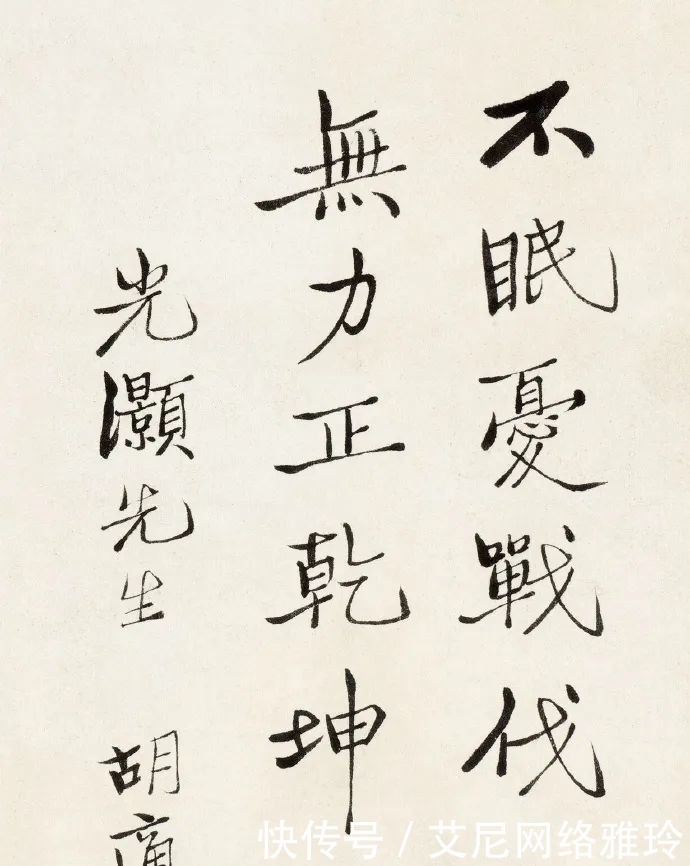 不眠憂戰伐
無力正乾坤
光灝先生 胡適
快传号 / 艾尼网络雅玲